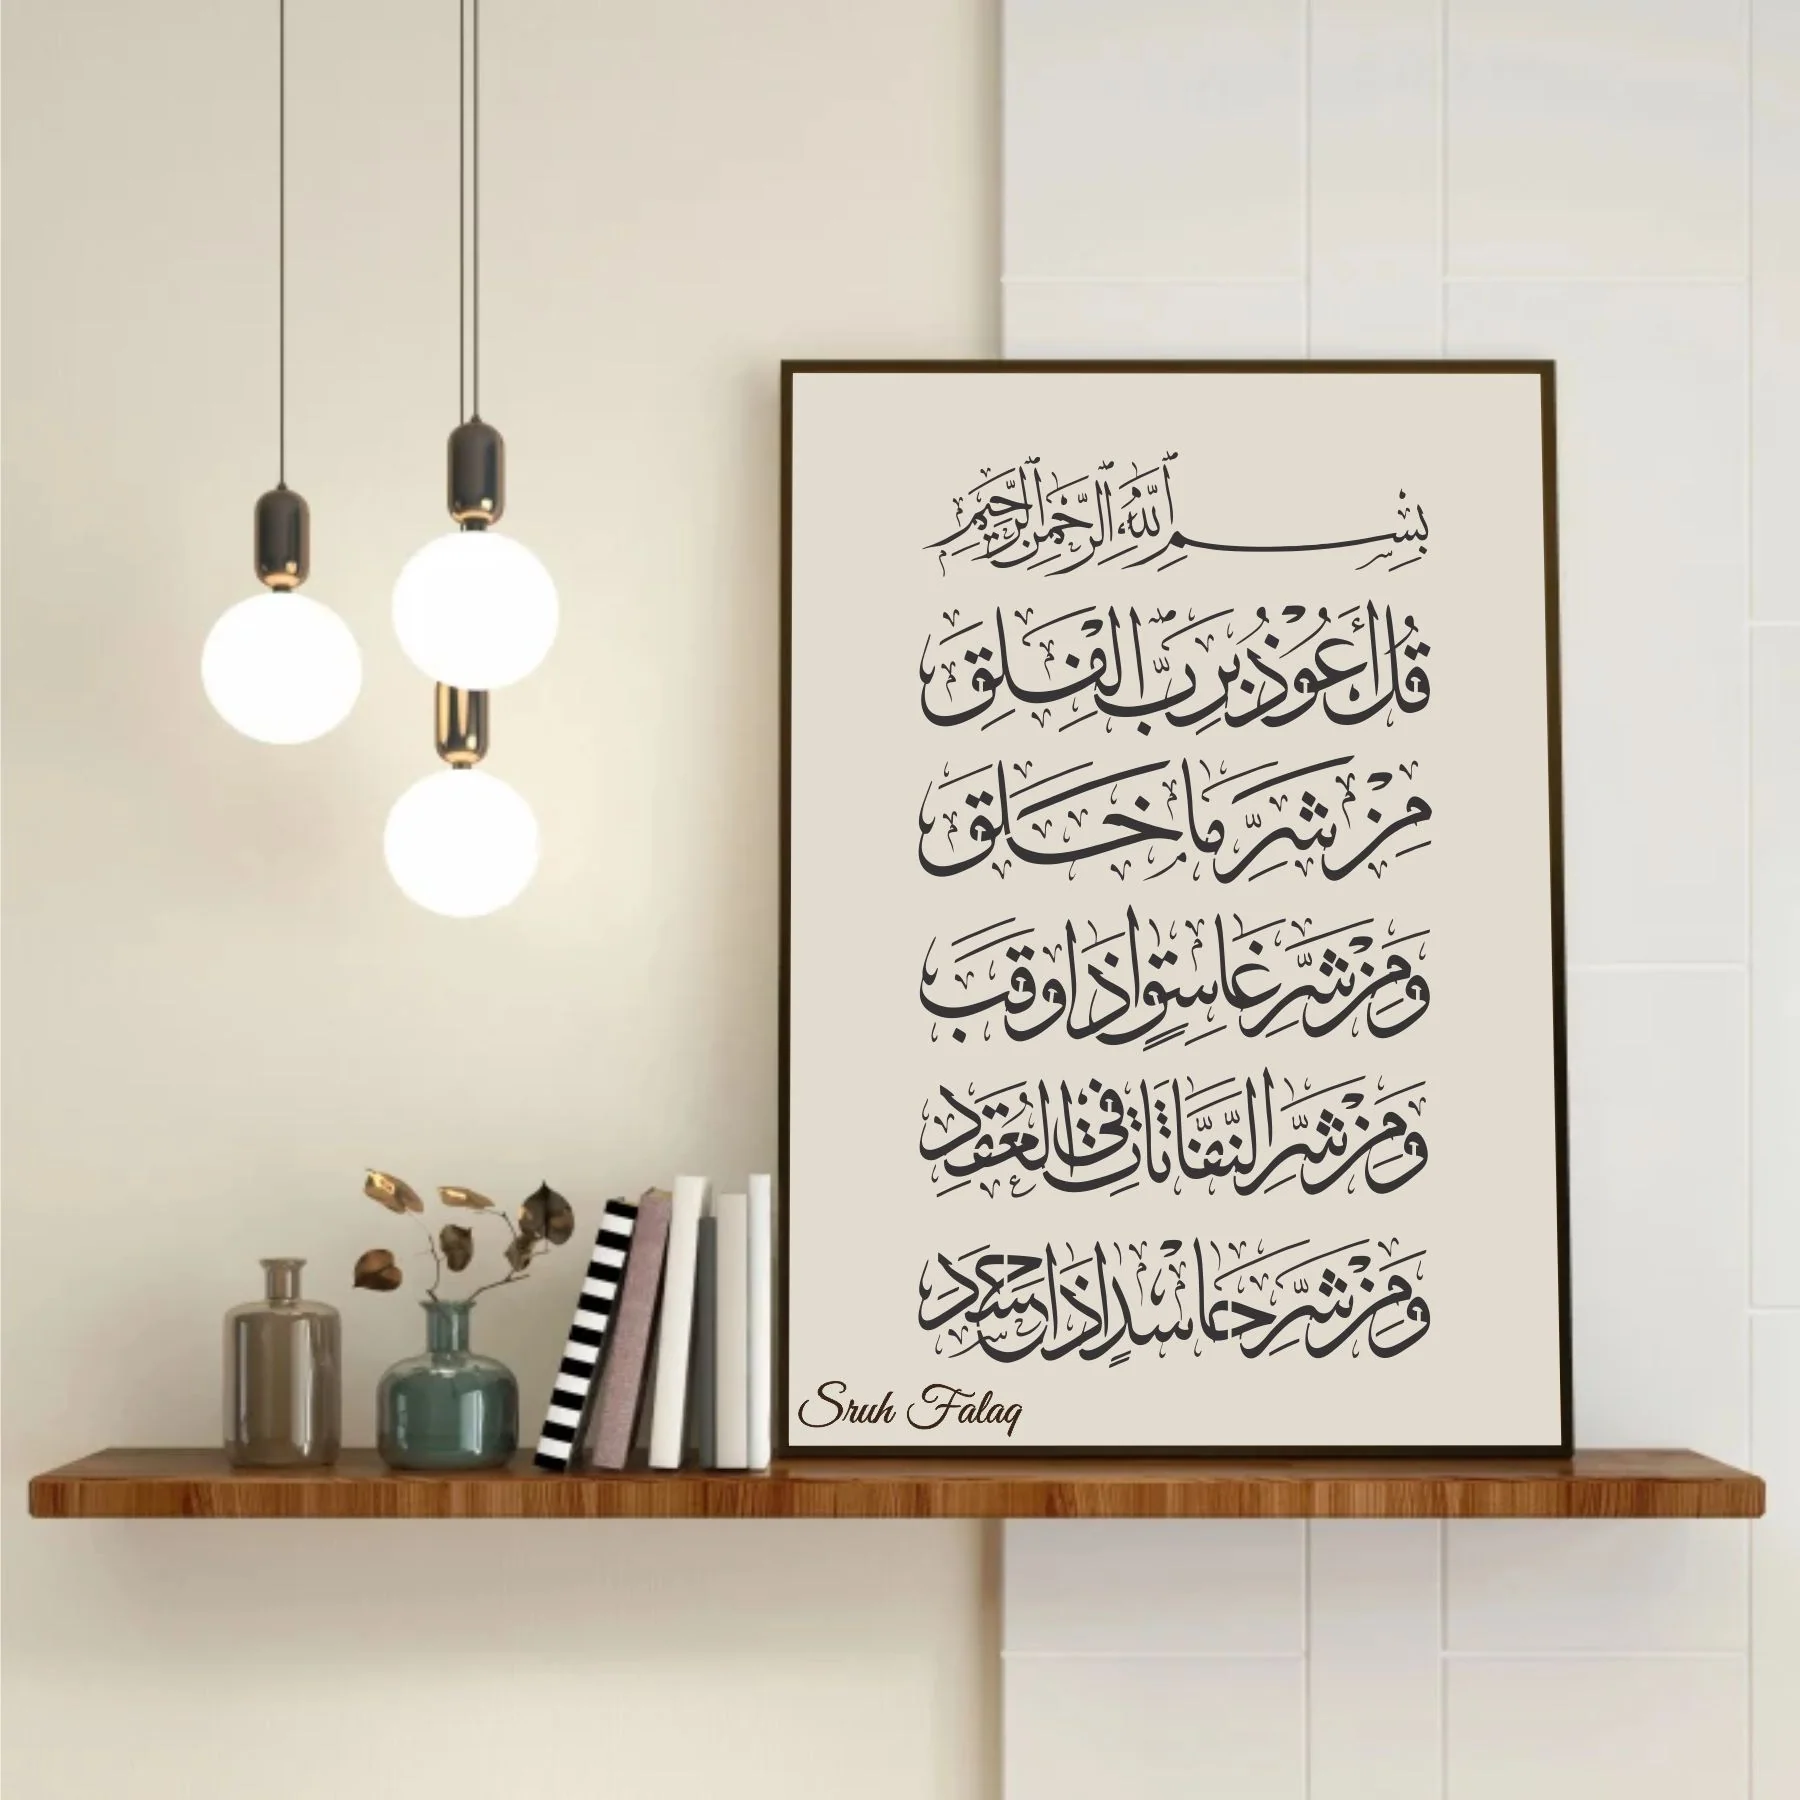 بِسْمِ ٱللَّهِ ٱلرَّحْمَٰنِ ٱلرَّحِيمِ
قُلْ أَعُوذُ بِرَبِّ الْفَلَقِ
مِنْ شَرِّ مَا خَلَقَ
وَمِنْ شَرِّ غَاسِقٍ إِذَا وَقَبَ
وَمِنْ شَرِّ النَّفَّاثَاتِ فِي الْعُقَدِ
وَمِنْ شَرِّ حَاسِدٍ إِذَا حَسَدَ
Sruh Falaq